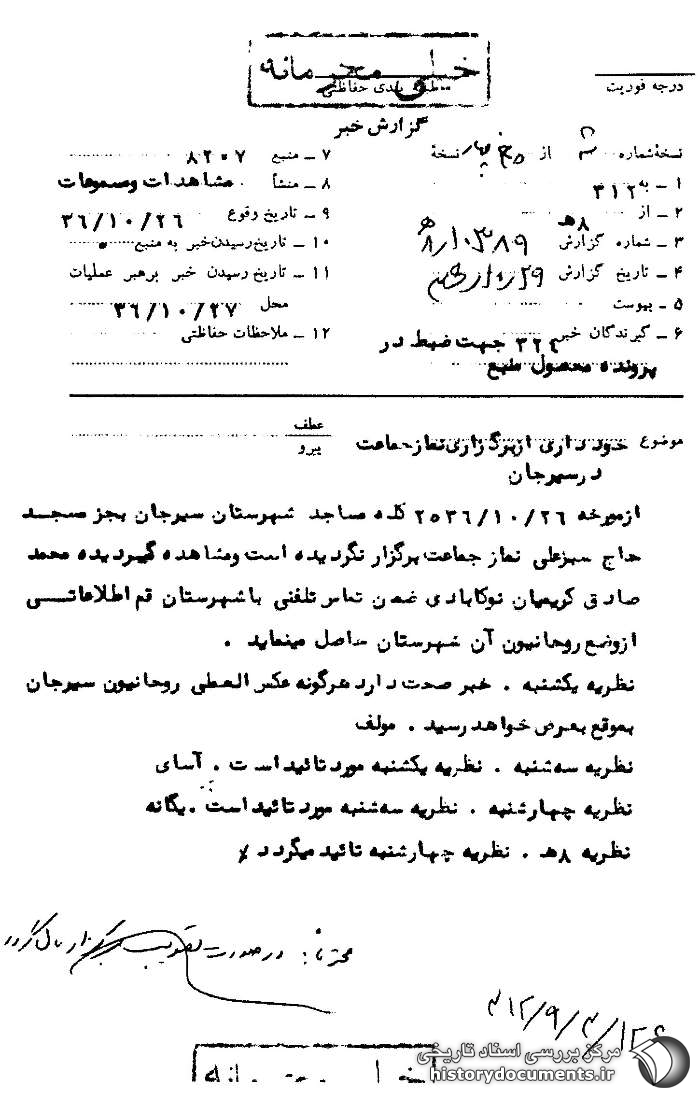 خیلی محرمانه
طبقه بندی حفاظتی
درجه فوریت
گزارش خبر
نسخهٔ شماره از نسخهٔ
۱ ـ به ۳۱۲
۲ ـ از ۸ هـ
۳ ـ شماره گزارش ۱۰۳۸۹/۸هـ
۴ ـ تاریخ گزارش
۵ ـ پیوست
۶ ـ گیرندگان خبر ۳۲٤ جهت ضبط در
پرونده محصول طبع
۷ ـ منبع ۸۲۰۷
۸ ـ منشأ مشاهدات و مسموعات
۹ ـ تاریخ وقوع ۳۶/۱۰/۲۶
۱۰ ـ تاریخ رسیدن خبر به منبع
۱۱ ـ تاریخ رسیدن خبر برهبر عملیات
محل ۳۶/۱۰/۲۷
۱۲ ـ ملاحظات حفاظتی
عطف
پیرو
موضوع خودداری از برگزاری نماز جماعت
در سیرجان
ازمورخه ۲۵۳۶/۱۰/۲۶ کلیه مساجد شهرستان سیرجان بجز مسجد
حاج سبزعلی نماز جماعت برگزار نگردیده است ومشاهده گردیده محمد
صادق کریمیان نوکابادی ضمن تماس تلفنی باشهرستان قم اطلاعاتی
ازوضع روحانیون آن شهرستان حاصل مینماید .
نظریه یکشنبه . خبر صحت دارد هرگونه عکس العملی روحانیون سیرجان
بموقع بعرض خواهد رسید . مولف
نظریه سه‌شنبه . نظریه یکشنبه مورد تائید است . آسای
نظریه چهارشنبه . نظریه سه‌شنبه مورد تائید است . یگانه
نظریه ۸هـ . نظریه چهارشنبه تائید میگردد
در صورت تصویب
مرکز بررسی اسناد تاریخی
historydocuments.ir